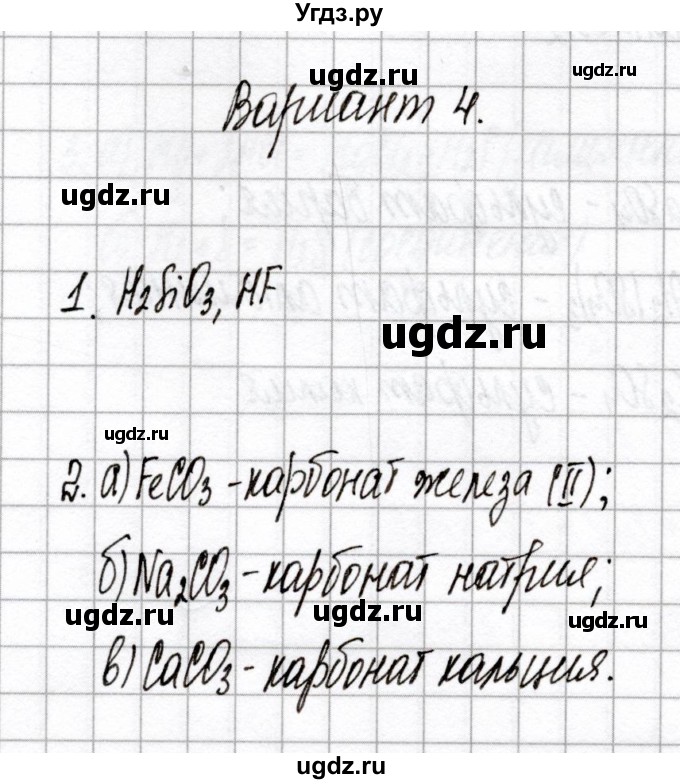 Угдз.ру
ugdz.ru
ugdz.ru
Вариант 4.
ugdz.ru
1. H₂SiO₃, HF
ugdz.ru
ugdz.ru
2. а) FeCO₃ - карбонат железа (II);
б) Na₂CO₃ - карбонат натрия;
ugdz.ru
ugdz.ru
ugdz.ru
в) CaCO₃ - карбонат кальция.
ugdz.ru